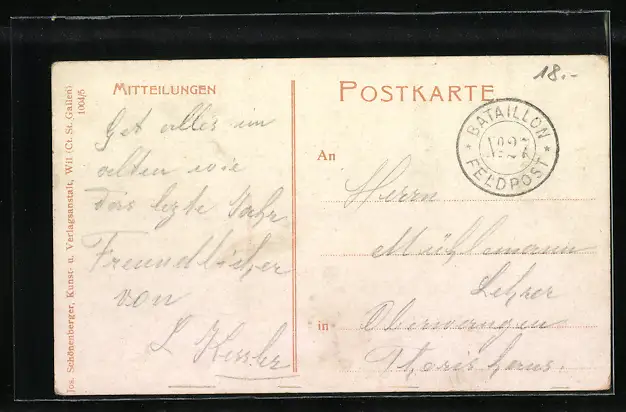 18.-
MITTEILUNGEN
POSTKARTE
BATAILLON
FELDPOST
Jos. Schönenberger, Kunst- u. Verlagsanstalt, Wil (Ct. St. Gallen)
1004/5
alles im
alten wie
das lezte Jahr
Freundlicher
von
L Kessler
An
Herrn
Mühlemann
Lehrer
in
Oberwangen
Thorishaus.